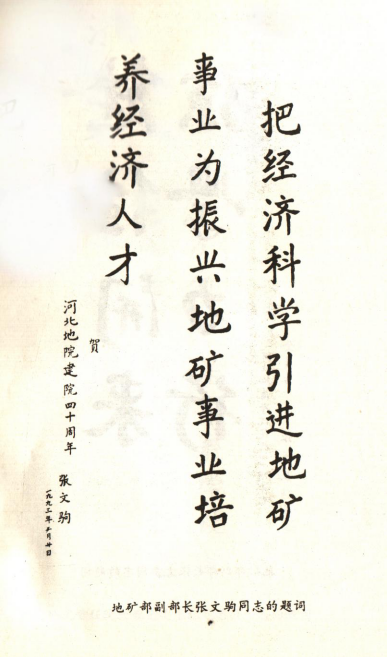 把经济科学引进地矿
事业为振兴地矿事业培
养经济人才
贺
河北地院建院四十周年
张文驹
地矿部副部长张文驹同志的题词